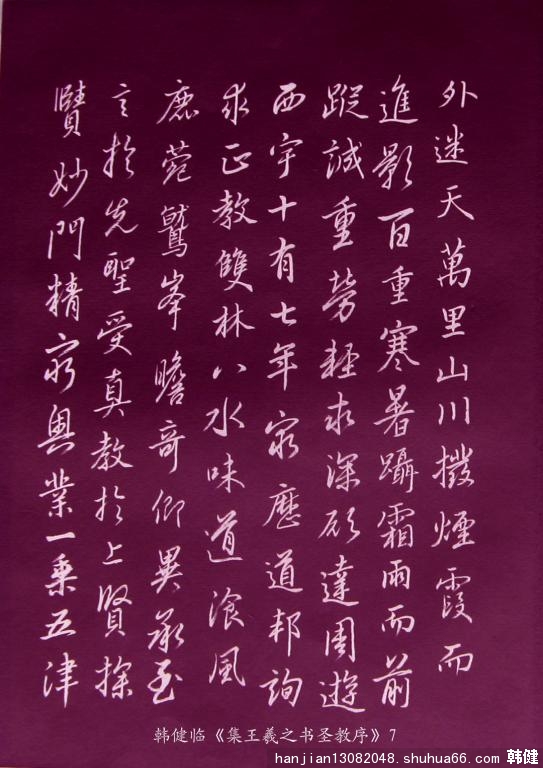 外迷天萬里山川撥煙霞而
進影百重寒暑躡霜雨而前
蹤誠重勞輕求深願達周遊
西宇十有七年窮歷道邦詢
求正教雙林八水味道湌風
鹿菀鷲峯瞻奇仰異承至
言於先聖受真教於上賢探
賾妙門精窮奧業一乘五津
韩健临《集王羲之书圣教序》7
hanjian13082048.shuhua66.com 韩健